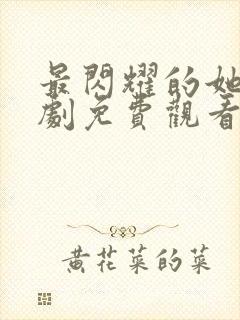 最閃耀的她
劇免費觀看
黃花菜的菜